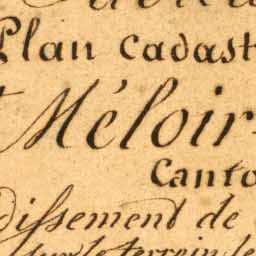 Plan Cadast
Méloir
Canto
dissement de
sur le terrein le